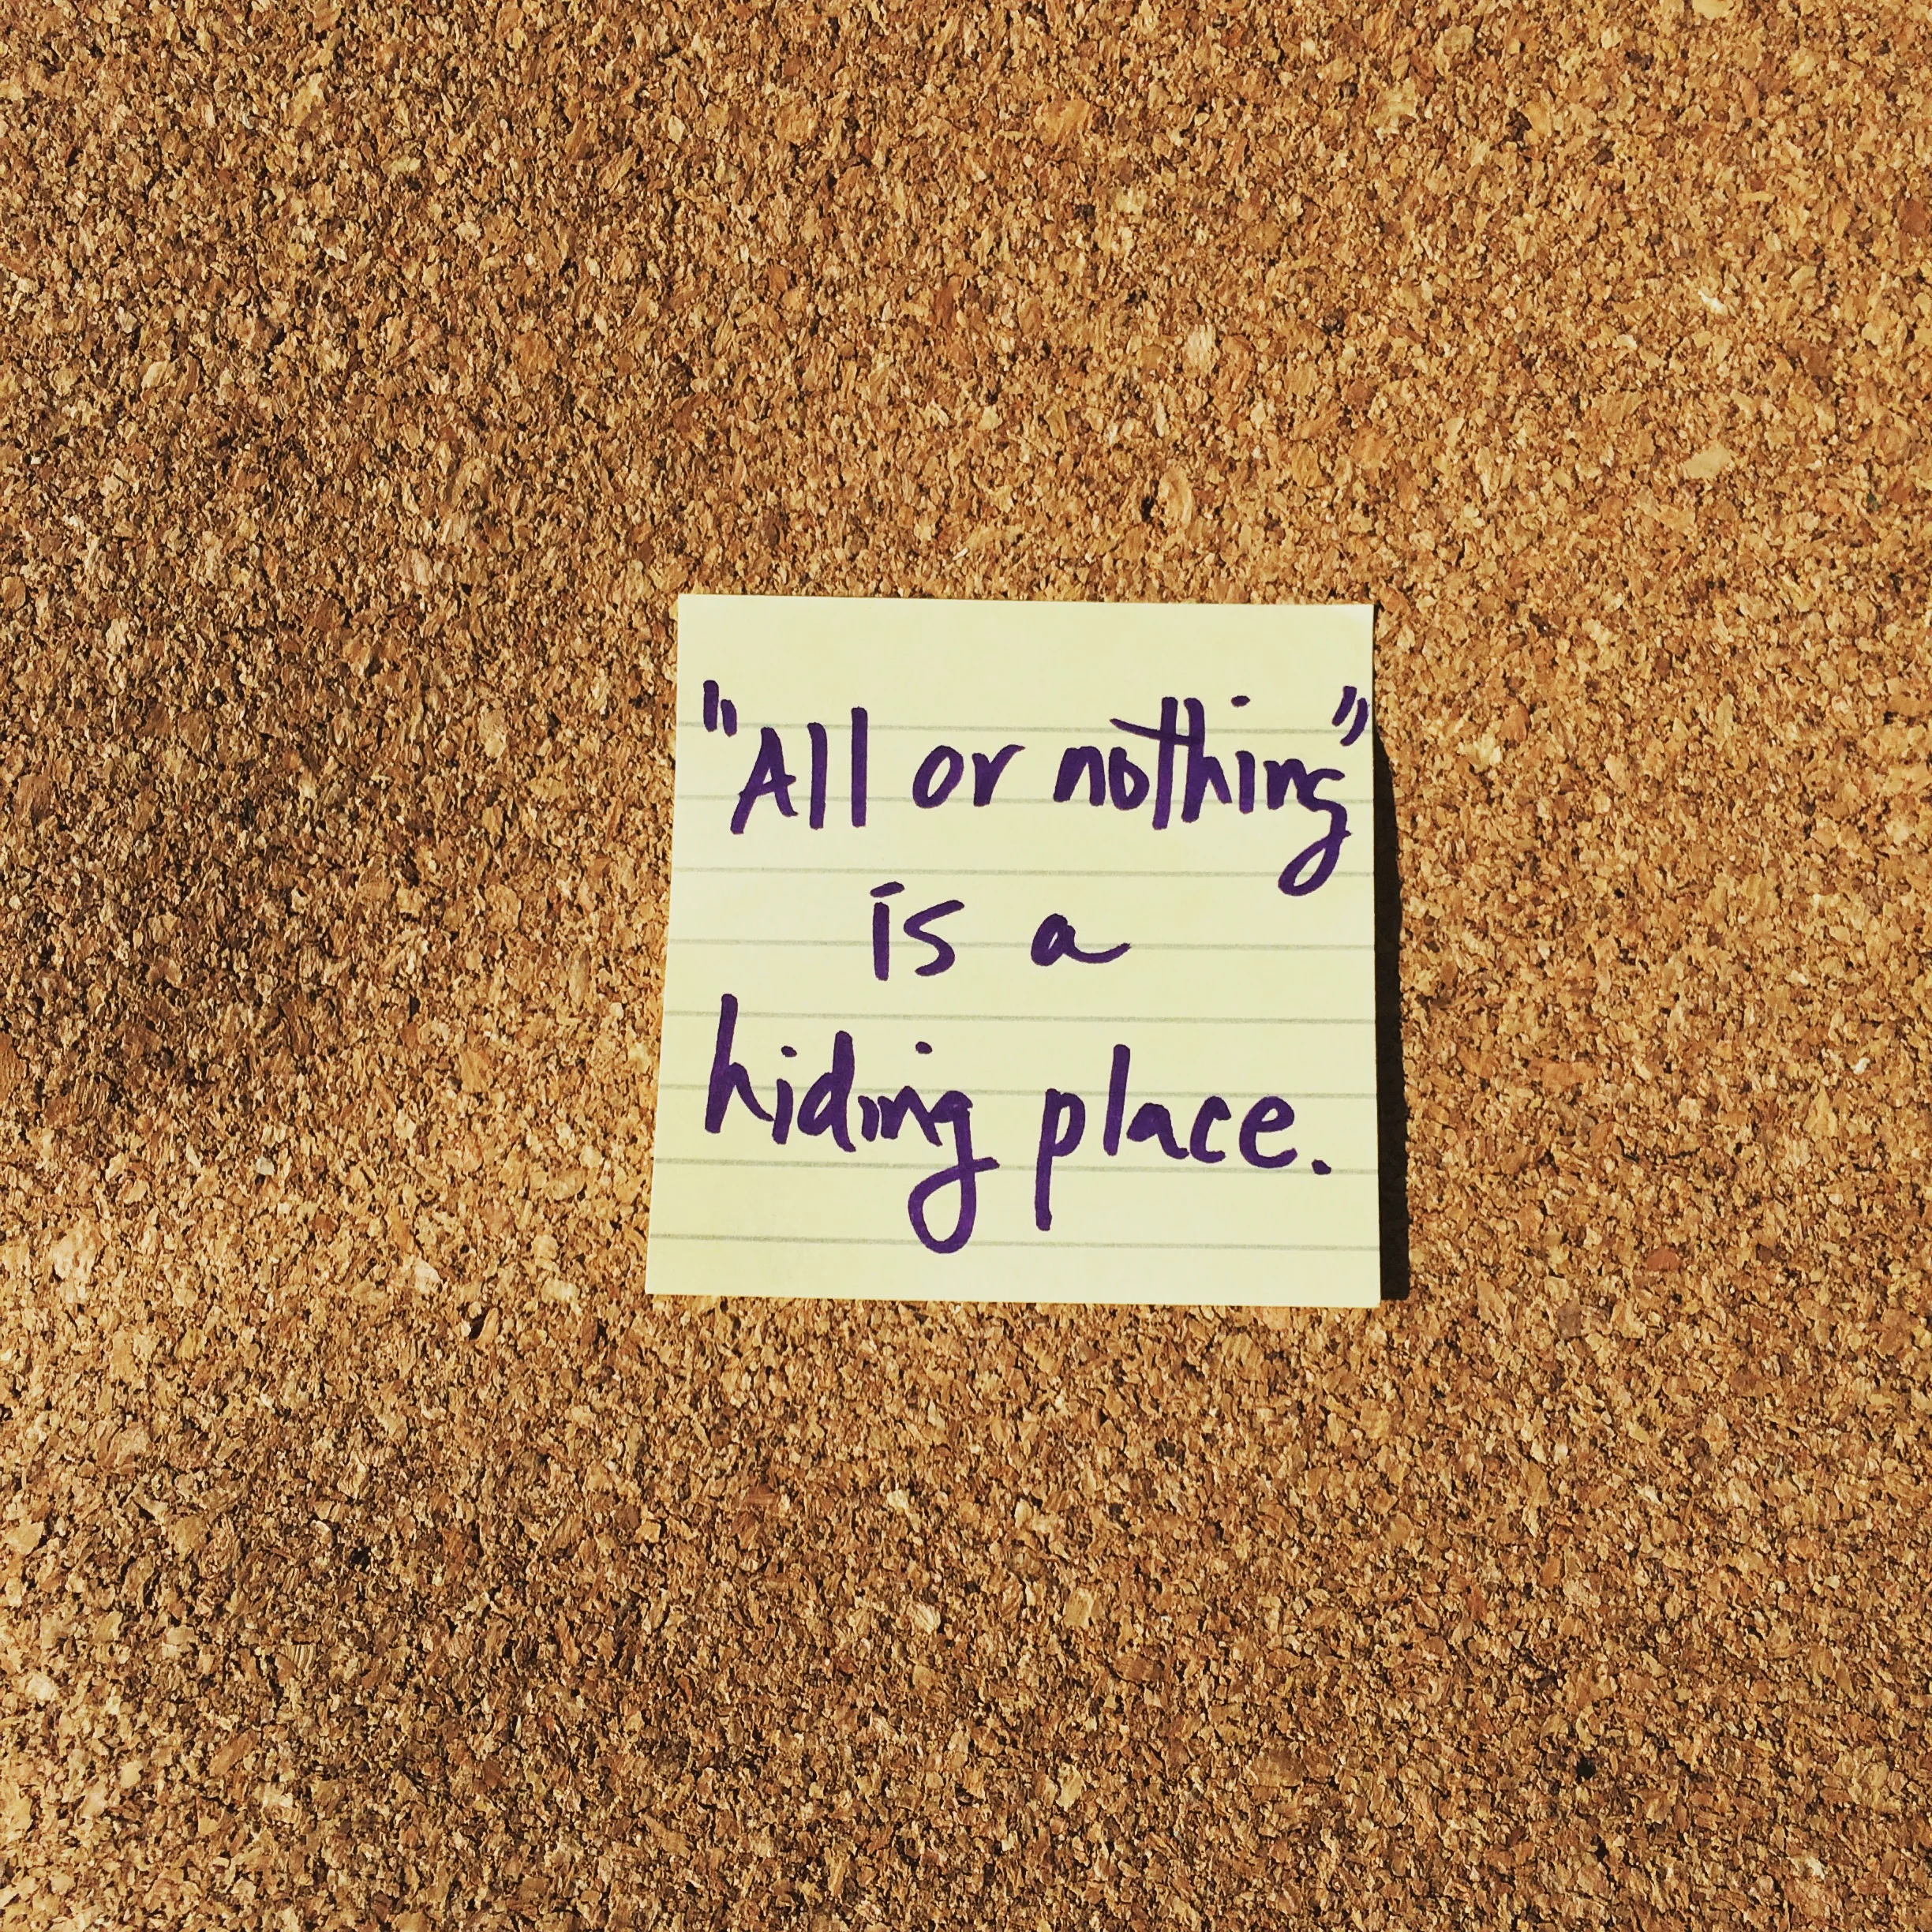 "All or nothing"
is a
hiding place.